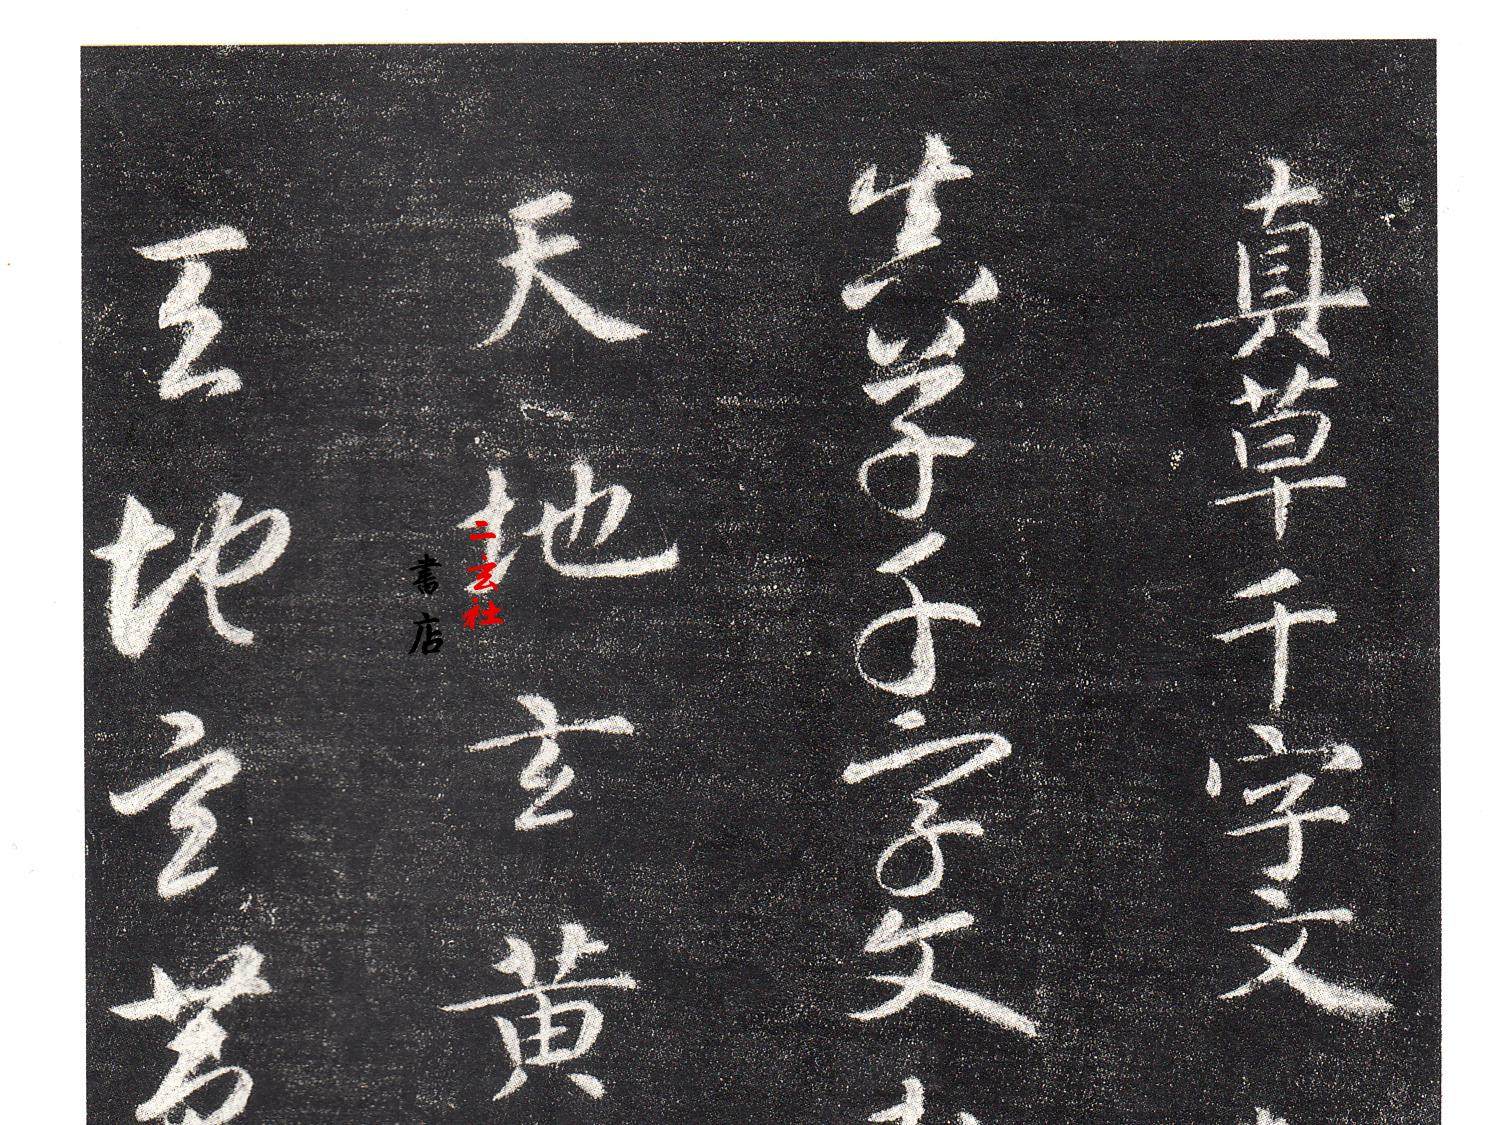 真草千字文
真草千字文
天地玄黄
天地玄黄
二玄社
書店